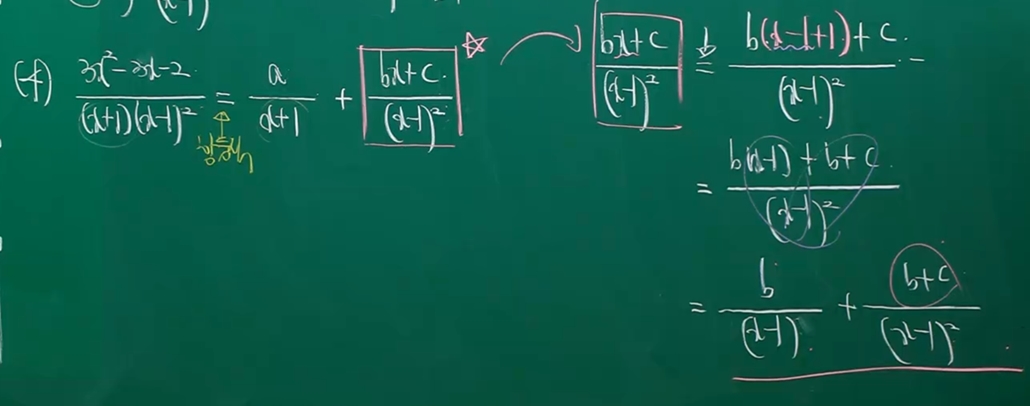 (4) \frac{3x^2-3x-2}{(x+1)(x-1)^2} = \frac{a}{x+1} + \frac{bx+c}{(x-1)^2}
\frac{bx+c}{(x-1)^2} = \frac{b(x-1+1)+c}{(x-1)^2}
= \frac{b(x-1)+b+c}{(x-1)^2}
= \frac{b}{(x-1)} + \frac{b+c}{(x-1)^2}